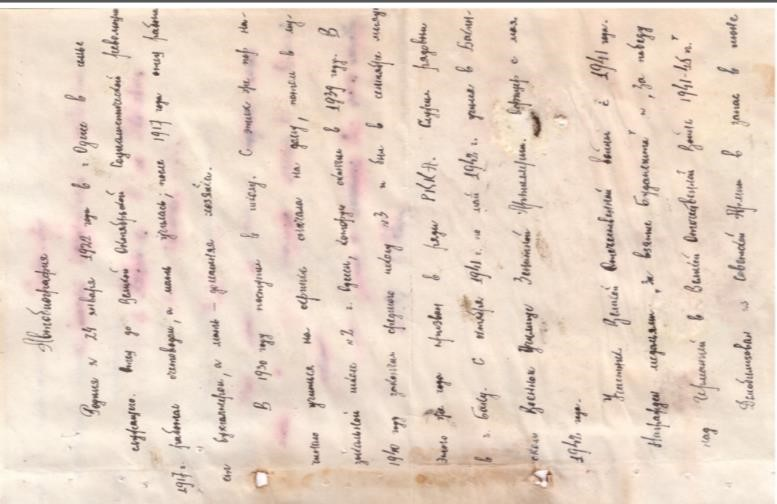 Автобиография
Родился 24 января 1922 года в г. Одессе в семье
служащего. Отец до Великой Октябрьской Социалистической революции
1917 г. работал счетоводом, а мать училась; после 1917 года отец работал
бухгалтером, а мать – домашняя хозяйка.
В 1930 году поступил в школу. С этих же пор на-
чал учиться на скрипке сначала на дому, потом в му-
зыкальной школе №2 г. Одессы, которую окончил в 1939 году. В
1940 году закончил среднюю школу №3 и был в сентябре месяце
этого же года призван в ряды РККА. Служил рядовым
в г. Баку. С октября 1941 г. по май 1942 г. учился в Бакин-
ском Военном Училище Зенитной Артиллерии. с мая
1942 года.
Участник Великой Отечественной войны с 1941 года.
Награжден медалями „За взятие Будапешта" и „За победу
над Германией в Великой Отечественной Войне 1941-45 гг."
Демобилизован из Советской Армии в запас в июне